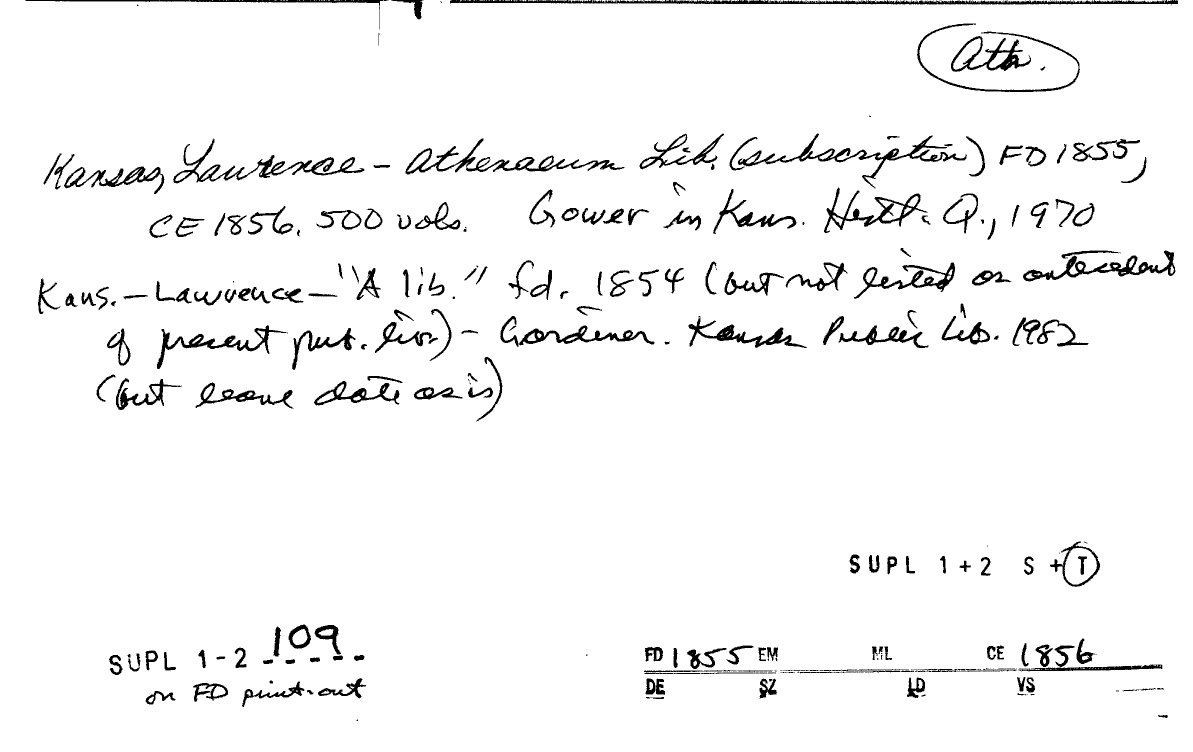 Ath.
Kansas, Lawrence – Athenaeum Lib. (subscription) FD 1855,
CE 1856, 500 vols. Gower in Kans. Histl. Q., 1970
Kans. – Lawrence – "A lib." fd. 1854 (but not listed as antecedent
of present pub. libr.) – Gardiner. Kansas Public Lib. 1982
(but leave date as is)
SUPL 1+2 S + T
SUPL 1-2 109
on FD print-out
FD 1855 EM ML CE 1856
DE SZ LD VS